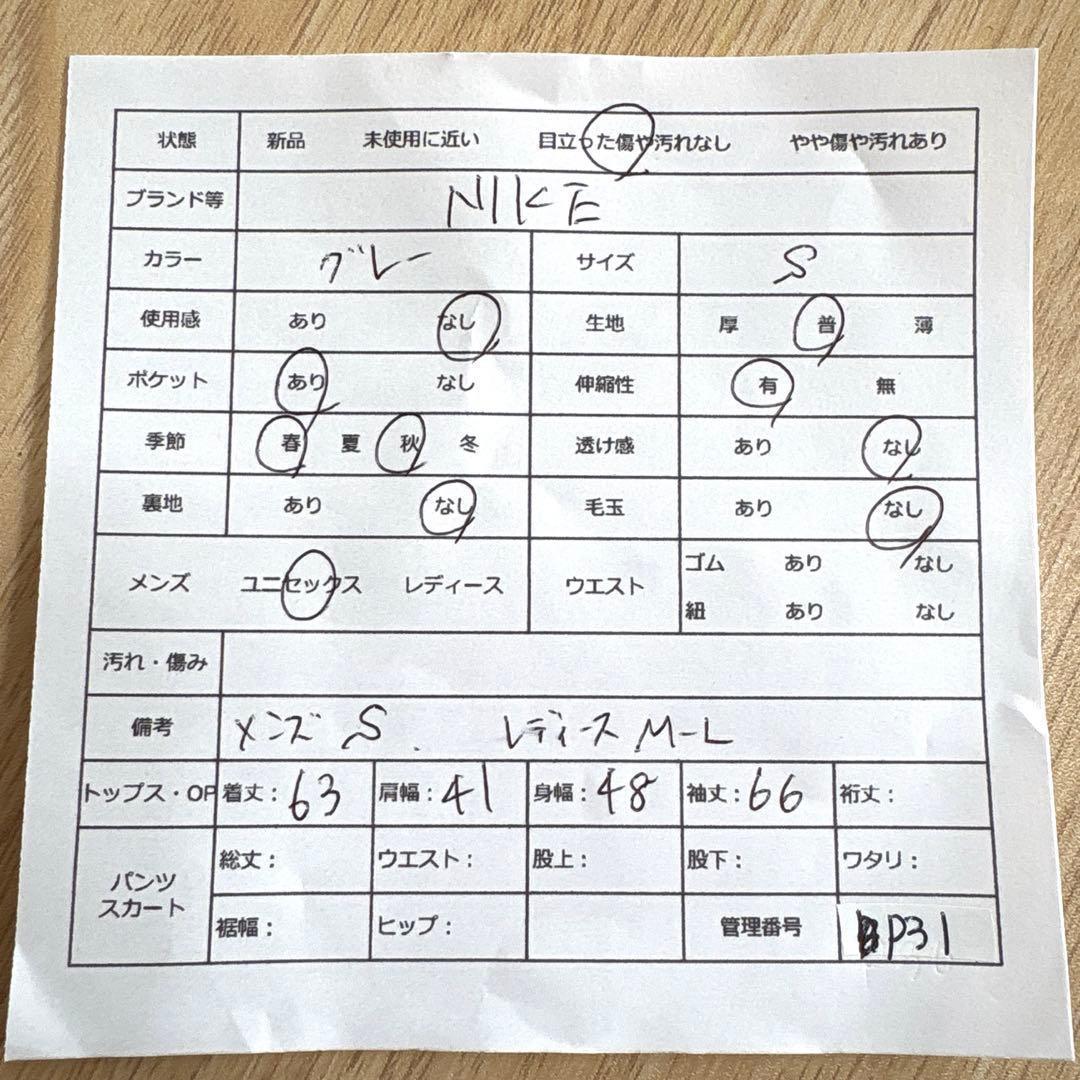 状態 新品 未使用に近い 目立った傷や汚れなし やや傷や汚れあり
ブランド等 NIKE
カラー グレー サイズ S
使用感 あり なし 生地 厚 普 薄
ポケット あり なし 伸縮性 有 無
季節 春 夏 秋 冬 透け感 あり なし
裏地 あり なし 毛玉 あり なし
メンズ ユニセックス レディース ウエスト ゴム あり なし
紐 あり なし
汚れ・傷み
備考 メンズ S. レディース M-L
トップス・OP 着丈：63 肩幅：41 身幅：48 袖丈：66 裄丈：
パンツ スカート 総丈： ウエスト： 股上： 股下： ワタリ：
裾幅： ヒップ： 管理番号 P31